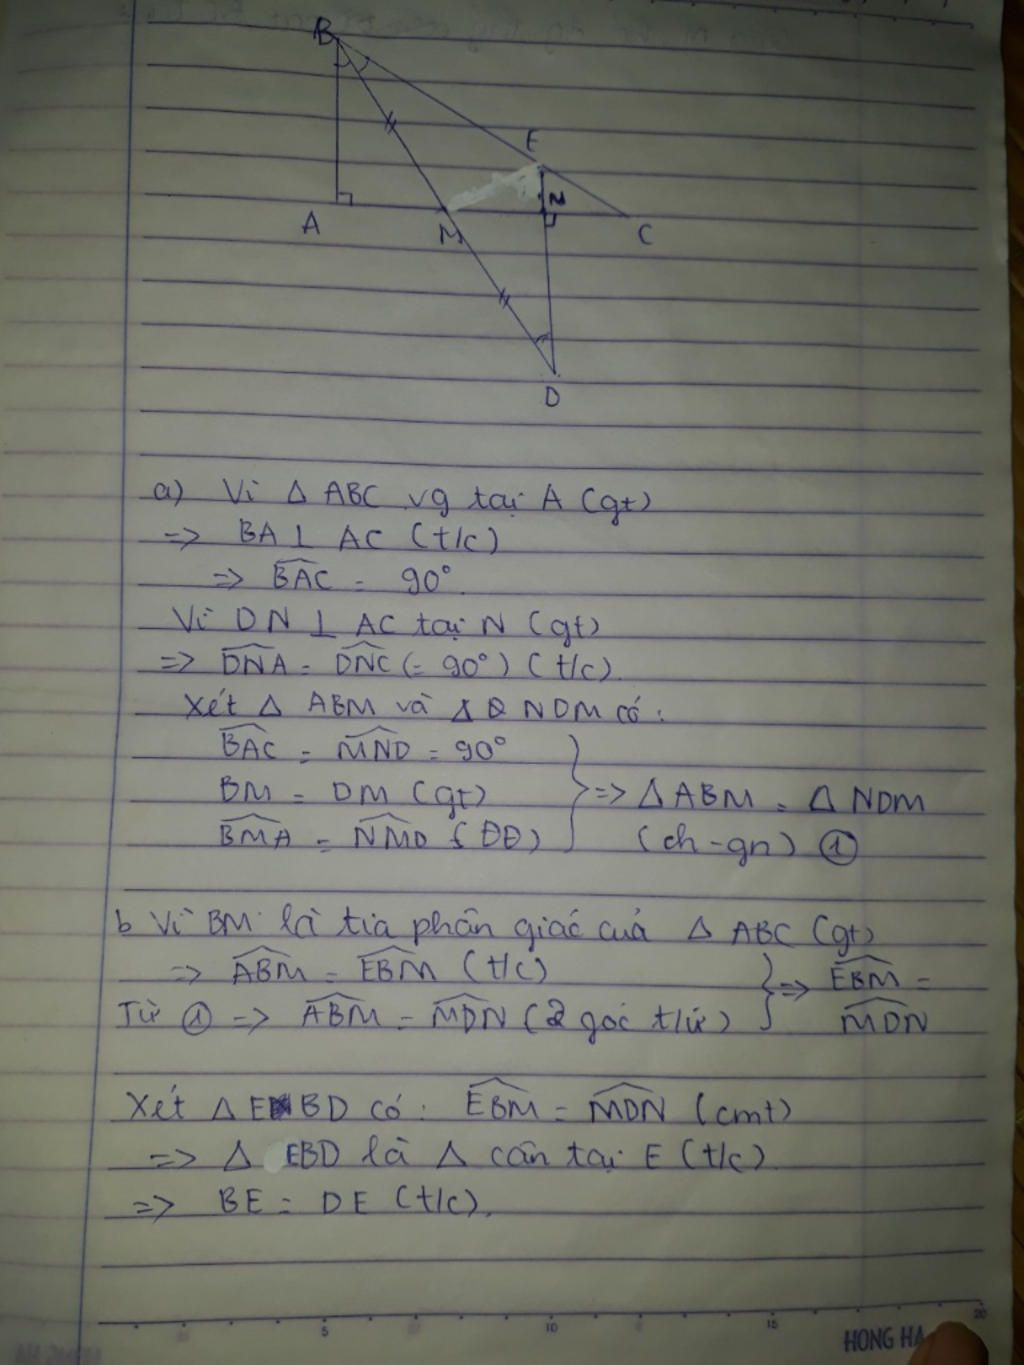 B
E
N
A
M
C
D
a) Vì Δ ABC vg tại A (gt)
=> BA ⊥ AC (t/c)
=> BAC = 90°.
Vì DN ⊥ AC tại N (gt)
=> DNA = DNC (= 90°) (t/c).
Xét Δ ABM và Δ NDM có:
BAC = MND = 90°
BM = DM (gt) } => Δ ABM = Δ NDM
BMA = NMD (ĐĐ) (ch-gn) ①
b Vì BM là tia phân giác của Δ ABC (gt)
=> ABM = EBM (t/c) } => EBM =
Từ ① => ABM = MDN (2 góc t/ứ) MDN
Xét Δ EBD có: EBM = MDN (cmt)
=> Δ EBD là Δ cân tại E (t/c)
=> BE = DE (t/c).
5 10 15 20
HONG HA